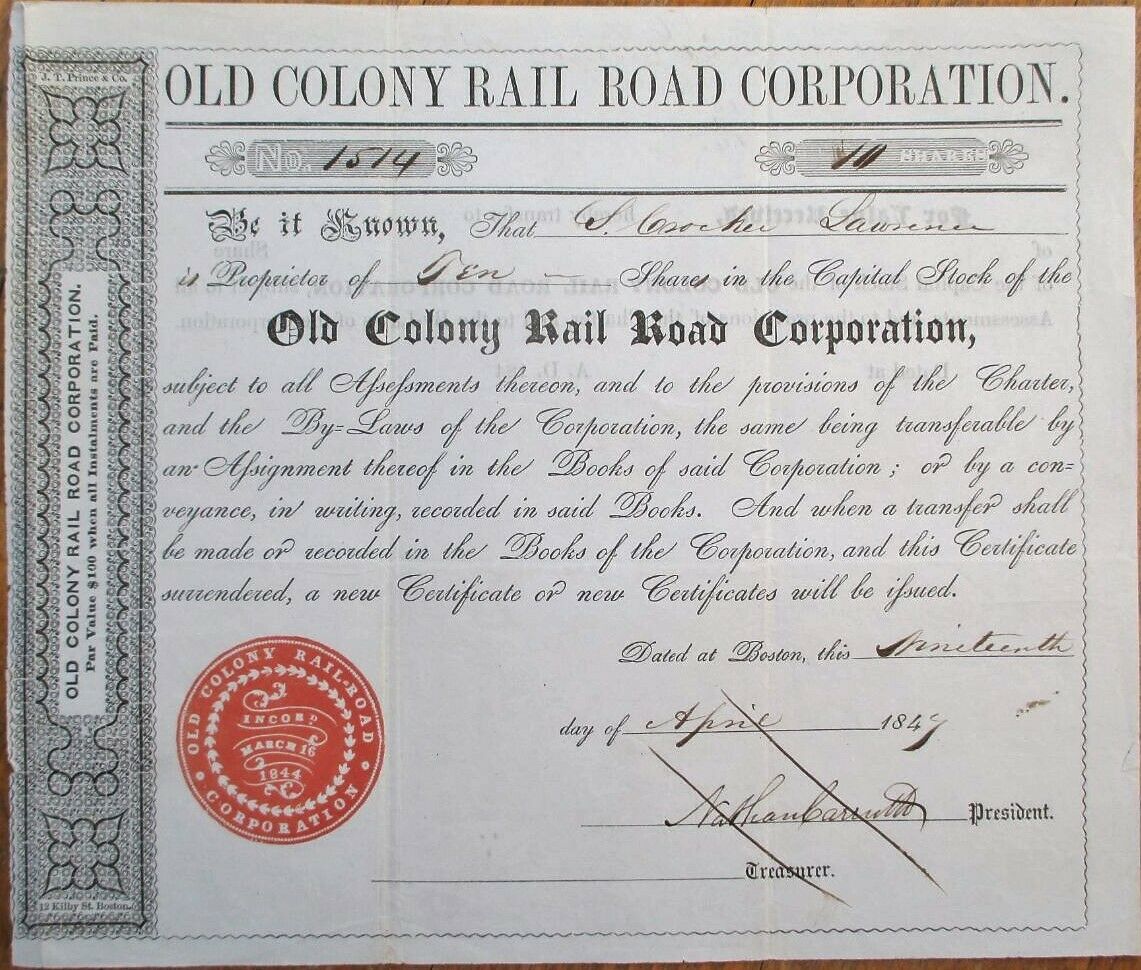 J. T. Prince & Co.
OLD COLONY RAIL ROAD CORPORATION.
Par Value $100 when all Instalments are Paid.
12 Kilby St. Boston.
OLD COLONY RAIL ROAD CORPORATION.
No. 1514 10 SHARES
Be it Known, That S. Crocker Lawrence
is Proprietor of Ten Shares in the Capital Stock of the
Old Colony Rail Road Corporation,
subject to all Assessments thereon, and to the provisions of the Charter,
and the By=Laws of the Corporation, the same being transferable by
an Assignment thereof in the Books of said Corporation; or by a con=
veyance, in writing, recorded in said Books. And when a transfer shall
be made or recorded in the Books of the Corporation, and this Certificate
surrendered, a new Certificate or new Certificates will be issued.
Dated at Boston, this Nineteenth
day of April 1847
Nathan Carruth President.
Treasurer.
OLD COLONY RAIL-ROAD
INCORP
MARCH 16
1844
CORPORATION